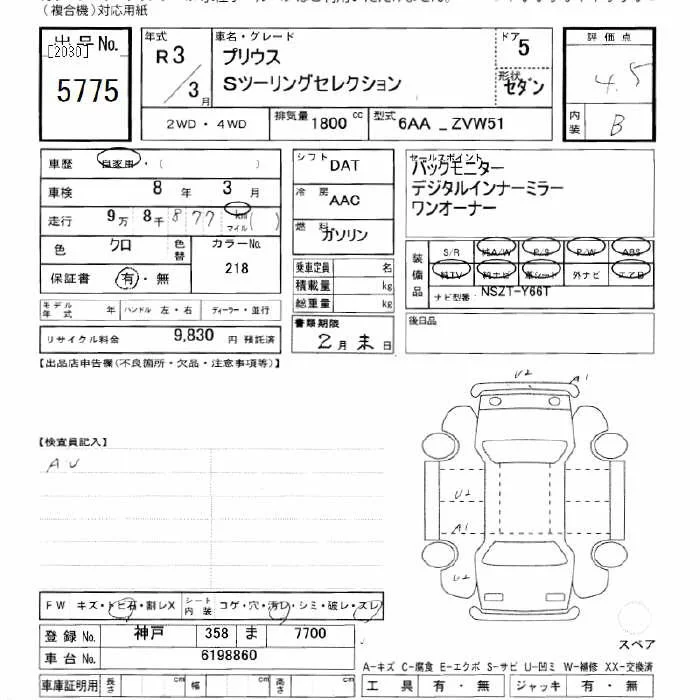 （複合機）対応用紙
出品No.
[2030]
5775
年式
R3
3月
車名・グレード
プリウス
Sツーリングセレクション
ドア
5
形状
セダン
評価点
4.5
内装
B
2WD・4WD
排気量 1800 cc
型式 6AA _ZVW51
車歴 自家用・( )
車検 8年 3月
走行 9万8千877 km マイル( )
色 クロ 色替
カラーNo.
218
保証書 有・無
シフト DAT
冷房 AAC
燃料 ガソリン
乗車定員 名
積載量 kg
総重量 kg
セールスポイント
バックモニター
デジタルインナーミラー
ワンオーナー
装備品
S/R 純A/W P/S P/W ABS
純TV 純ナビ 革シート 外ナビ エアB
ナビ型番: NSZT-Y66T
モデル年式 年 ハンドル 左・右 ディーラー・並行
リサイクル料金 9,830 円 預託済
書類期限
2月末日
後日品
【出品店申告欄(不良箇所・欠品・注意事項等)】
U2 A1
【検査員記入】
AU
U2
A1
U2
FW キズ・トビ石・割レX
シート内装 コゲ・穴・汚レ・シミ・破レ・スレ
登録No. 神戸 358 ま 7700
車台No. 6198860
スペア
車庫証明用 長さ cm 幅 cm 高さ cm
A-キズ C-腐食 E-エクボ S-サビ U-凹ミ W-補修 XX-交換済
工具 有・無 ジャッキ 有・無